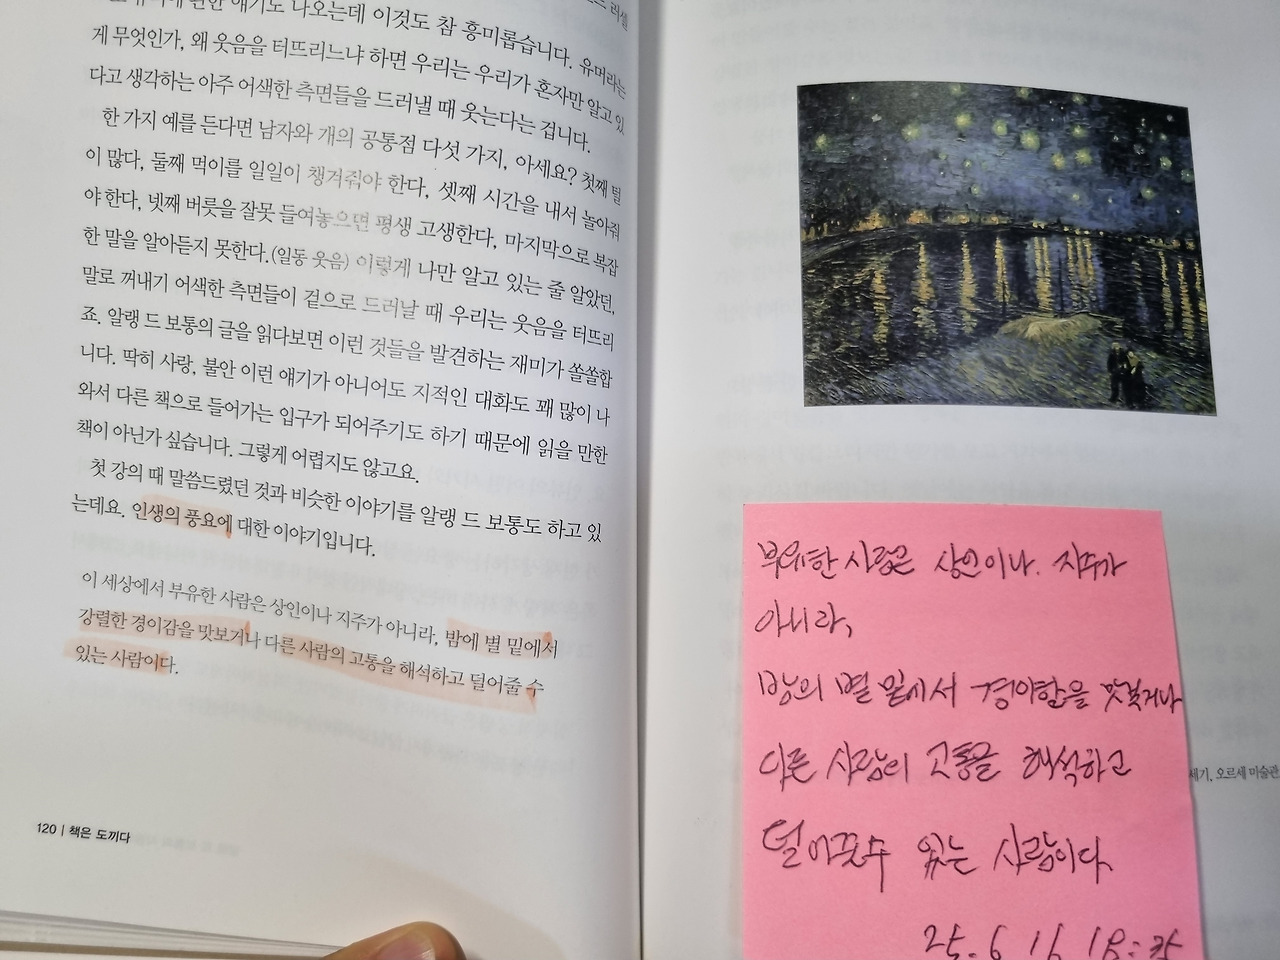 관한 얘기도 나오는데 이것도 참 흥미롭습니다. 유머라는
게 무엇인가, 왜 웃음을 터뜨리느냐 하면 우리는 우리가 혼자만 알고 있
다고 생각하는 아주 어색한 측면들을 드러낼 때 웃는다는 겁니다.
한 가지 예를 든다면 남자와 개의 공통점 다섯 가지, 아세요? 첫째 털
이 많다, 둘째 먹이를 일일이 챙겨줘야 한다, 셋째 시간을 내서 놀아줘
야 한다, 넷째 버릇을 잘못 들여놓으면 평생 고생한다, 마지막으로 복잡
한 말을 알아듣지 못한다.(일동 웃음) 이렇게 나만 알고 있는 줄 알았던,
말로 꺼내기 어색한 측면들이 겉으로 드러날 때 우리는 웃음을 터뜨리
죠. 알랭 드 보통의 글을 읽다보면 이런 것들을 발견하는 재미가 쏠쏠합
니다. 딱히 사랑, 불안 이런 얘기가 아니어도 지적인 대화도 꽤 많이 나
와서 다른 책으로 들어가는 입구가 되어주기도 하기 때문에 읽을 만한
책이 아닌가 싶습니다. 그렇게 어렵지도 않고요.
첫 강의 때 말씀드렸던 것과 비슷한 이야기를 알랭 드 보통도 하고 있
는데요. 인생의 풍요에 대한 이야기입니다.
이 세상에서 부유한 사람은 상인이나 지주가 아니라, 밤에 별 밑에서
강렬한 경이감을 맛보거나 다른 사람의 고통을 해석하고 덜어줄 수
있는 사람이다.
120 | 책은 도끼다
부유한 사람은 상인이나. 지주가
아니라,
밤의 별 밑에서 경이함을 맛보거나
다른 사람의 고통을 해석하고
덜어줄수 있는 사람이다.
25. 6 16 18:
세기, 오르세 미술관